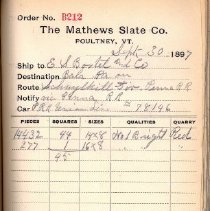 Order No. B212
The Mathews Slate Co.
POULTNEY, VT.
Sept 30 1897
Ship to E S Bortel and Co
Destination Bala Pa
Route Schuylkill Penna RR
Notify Penna RR
Car PRR # 78196
PIECES SQUARES SIZES QUALITIES QUARRY
14432 94 14x8 No 1 Bright Red
277 1 16x8
95